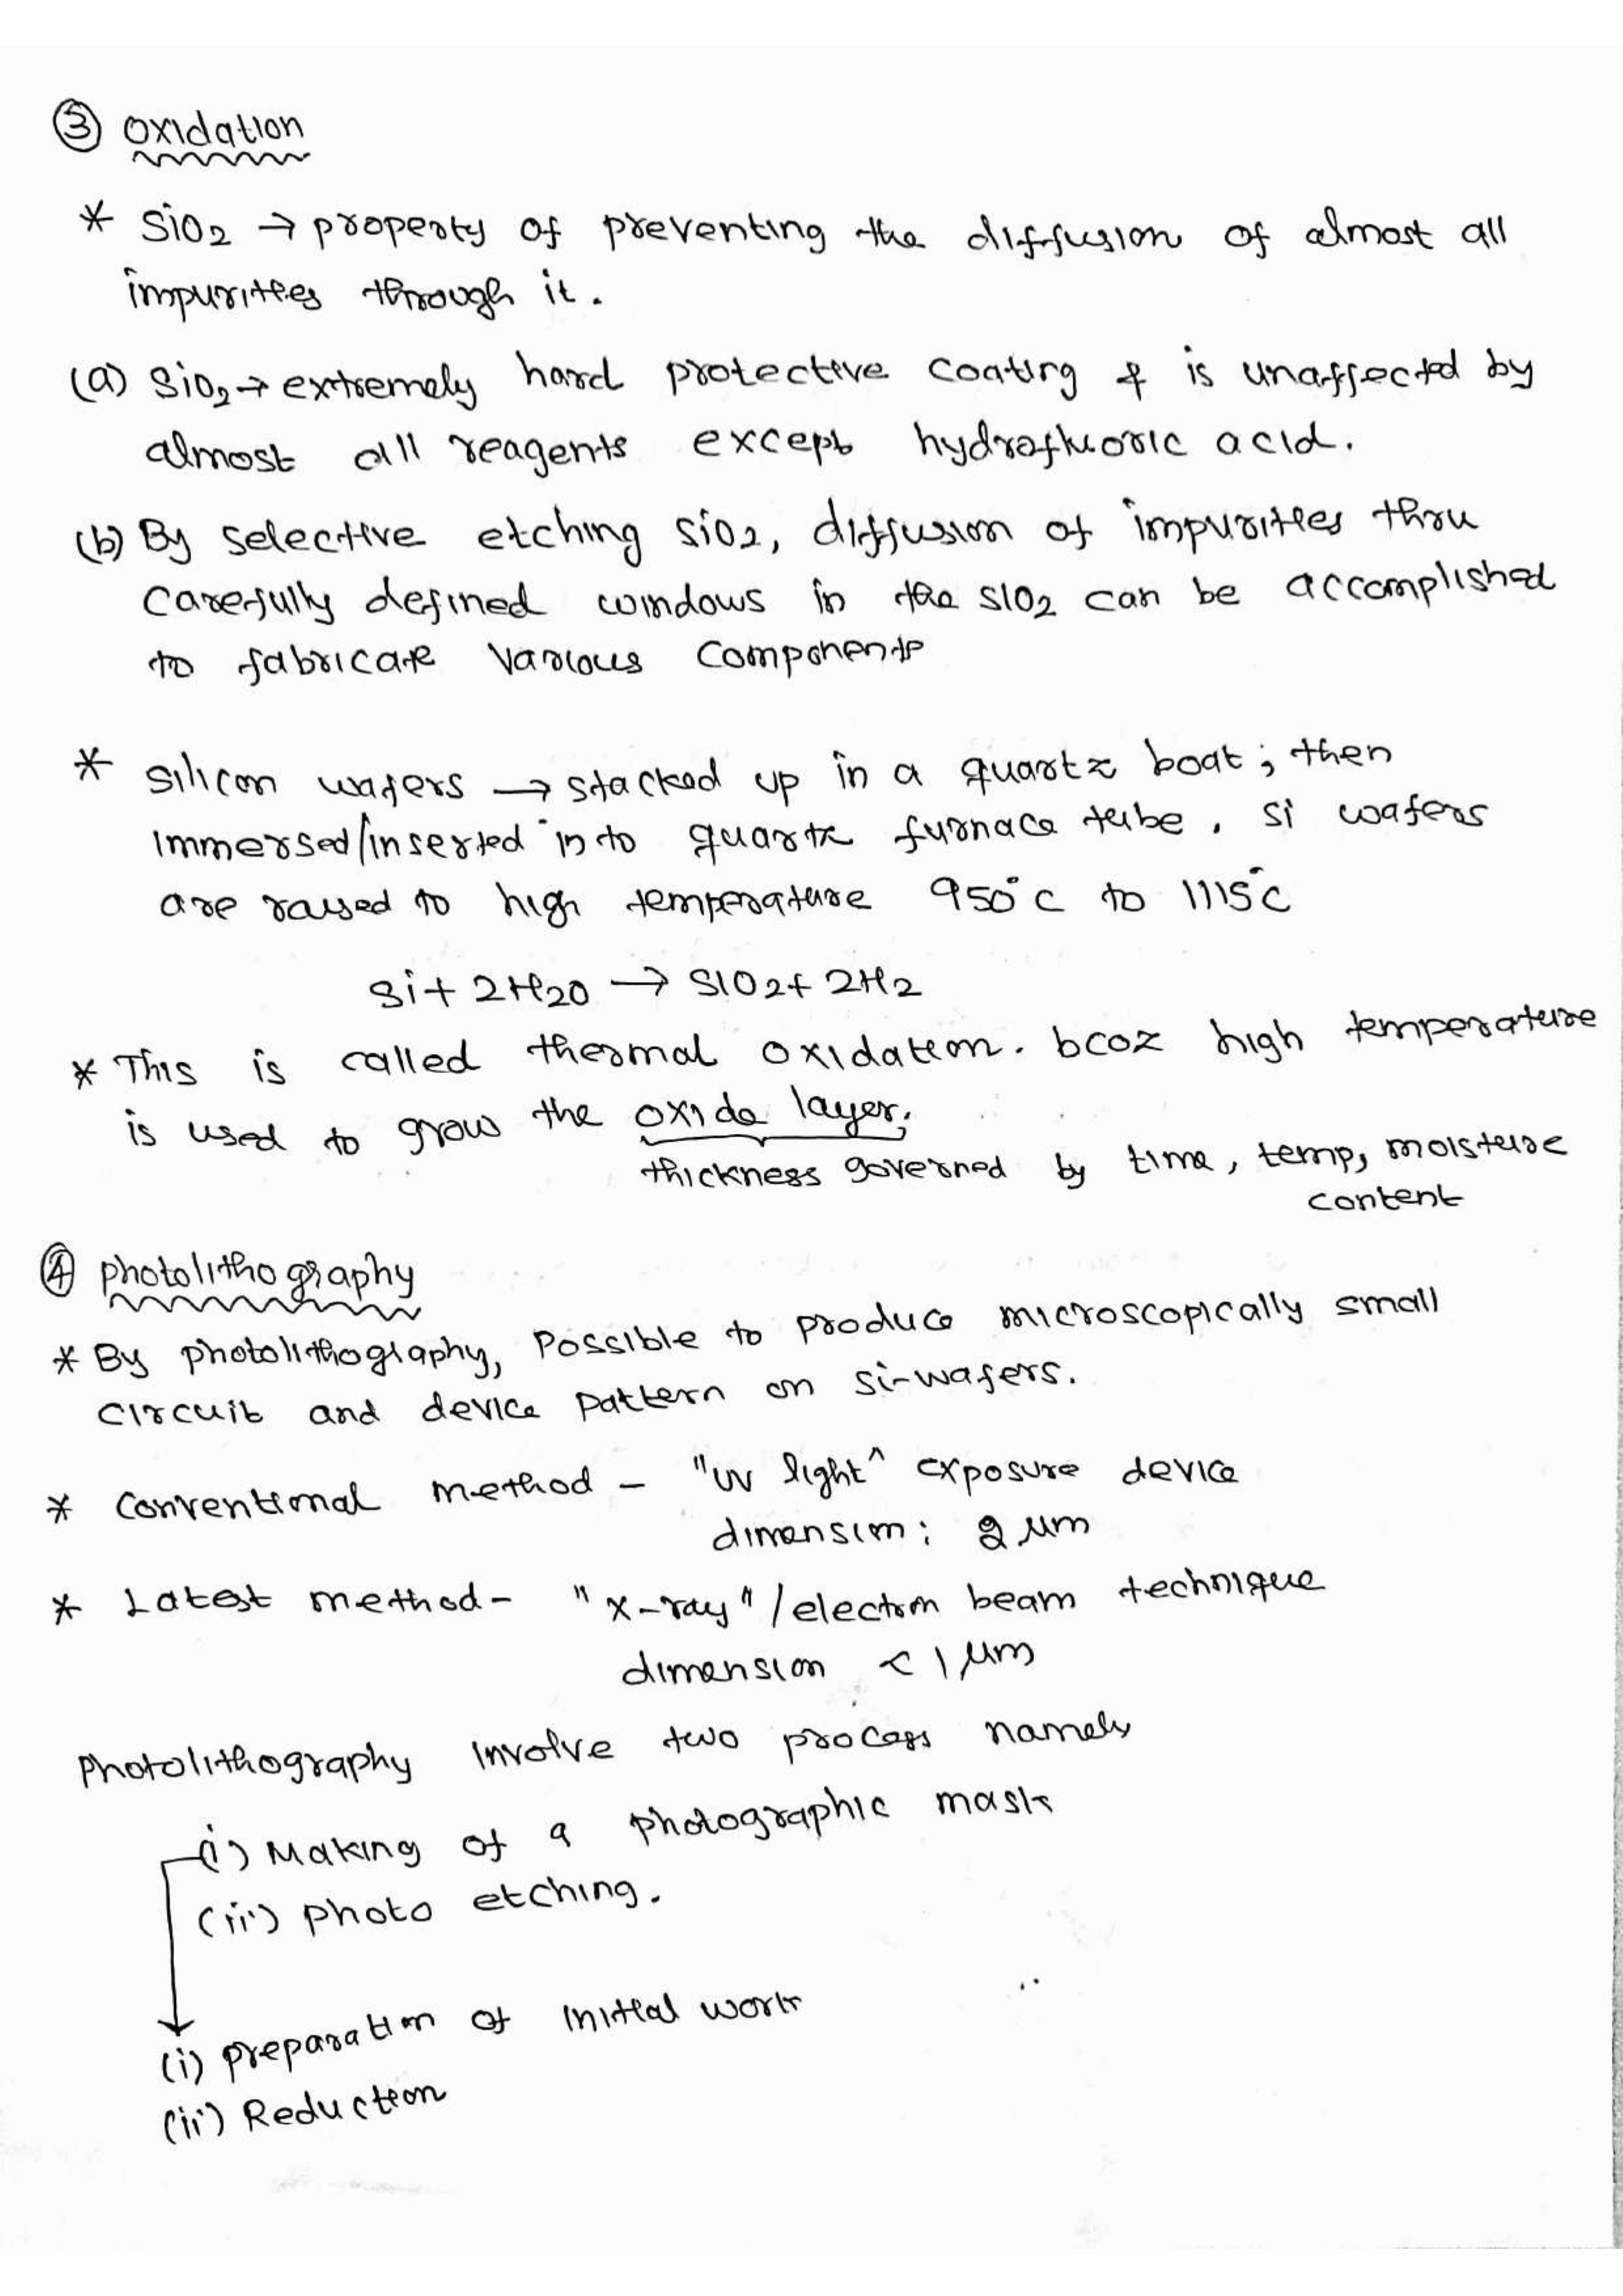 ③ oxidation
* SiO2 → property of preventing the diffusion of almost all
impurities through it.
(a) SiO2 → extremely hard protective coating & is unaffected by
almost all reagents except hydrofluoric acid.
(b) By selective etching SiO2, diffusion of impurities thru
carefully defined windows in the SiO2 can be accomplished
to fabricate various components
* Silicon wafers → stacked up in a quartz boat; then
immersed/inserted in to quartz furnace tube. Si wafers
are raised to high temperature 950°C to 1115°C
Si + 2H2O → SiO2 + 2H2
* This is called thermal oxidation. bcoz high temperature
is used to grow the oxide layer.
thickness governed by time, temp, moisture
content
④ photolithography
* By photolithography, possible to produce microscopically small
circuit and device pattern on si-wafers.
* Conventional method - "UV light" exposure device
dimension: 2 μm
* Latest method - "x-ray" / electron beam technique
dimension < 1 μm
Photolithography involve two process namely
(i) Making of a photographic mask
(ii) photo etching.
(i) preparation of initial work
(ii) Reduction